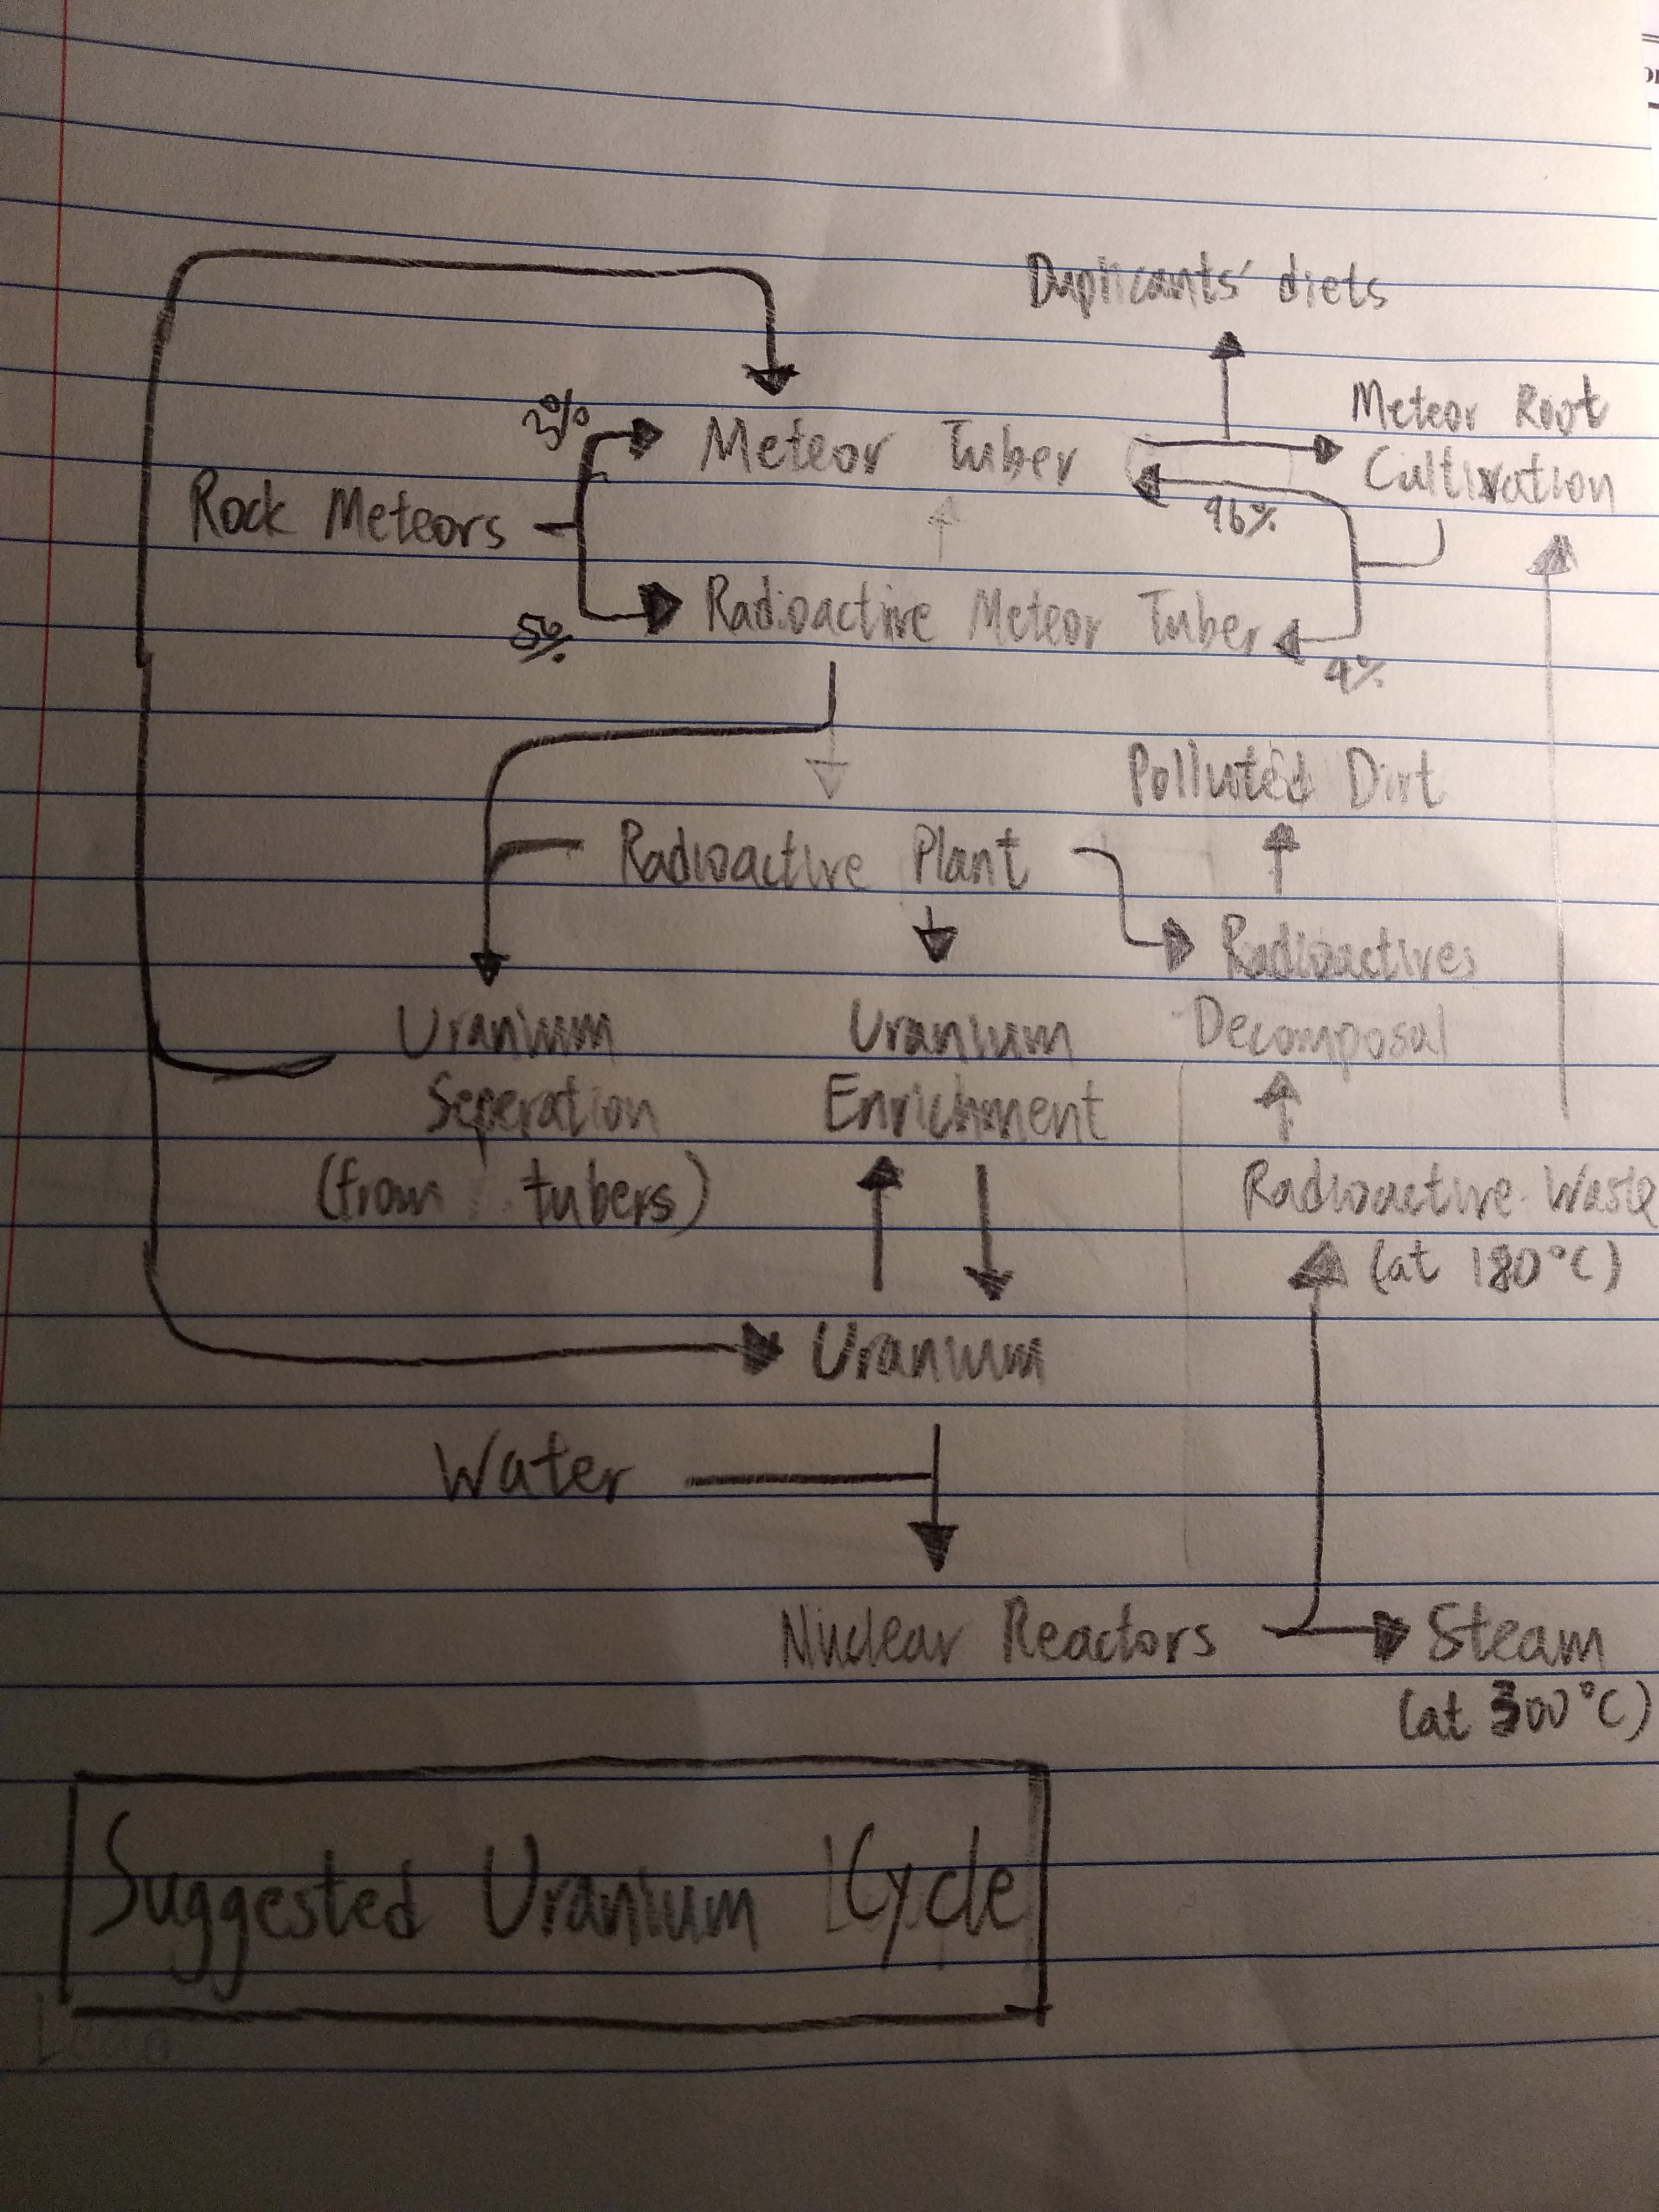 Duplicants' diets
3%
Meteor Tuber
Meteor Root
Cultivation
96%
Rock Meteors
5%
Radioactive Meteor Tuber
4%
Polluted Dirt
Radioactive Plant
Radioactives
Decomposal
Uranium
Seperation
(from tubers)
Uranium
Enrichment
Radioactive Waste
(at 180°C)
Uranium
Water
Nuclear Reactors
Steam
(at 300°C)
Suggested Uranium Cycle